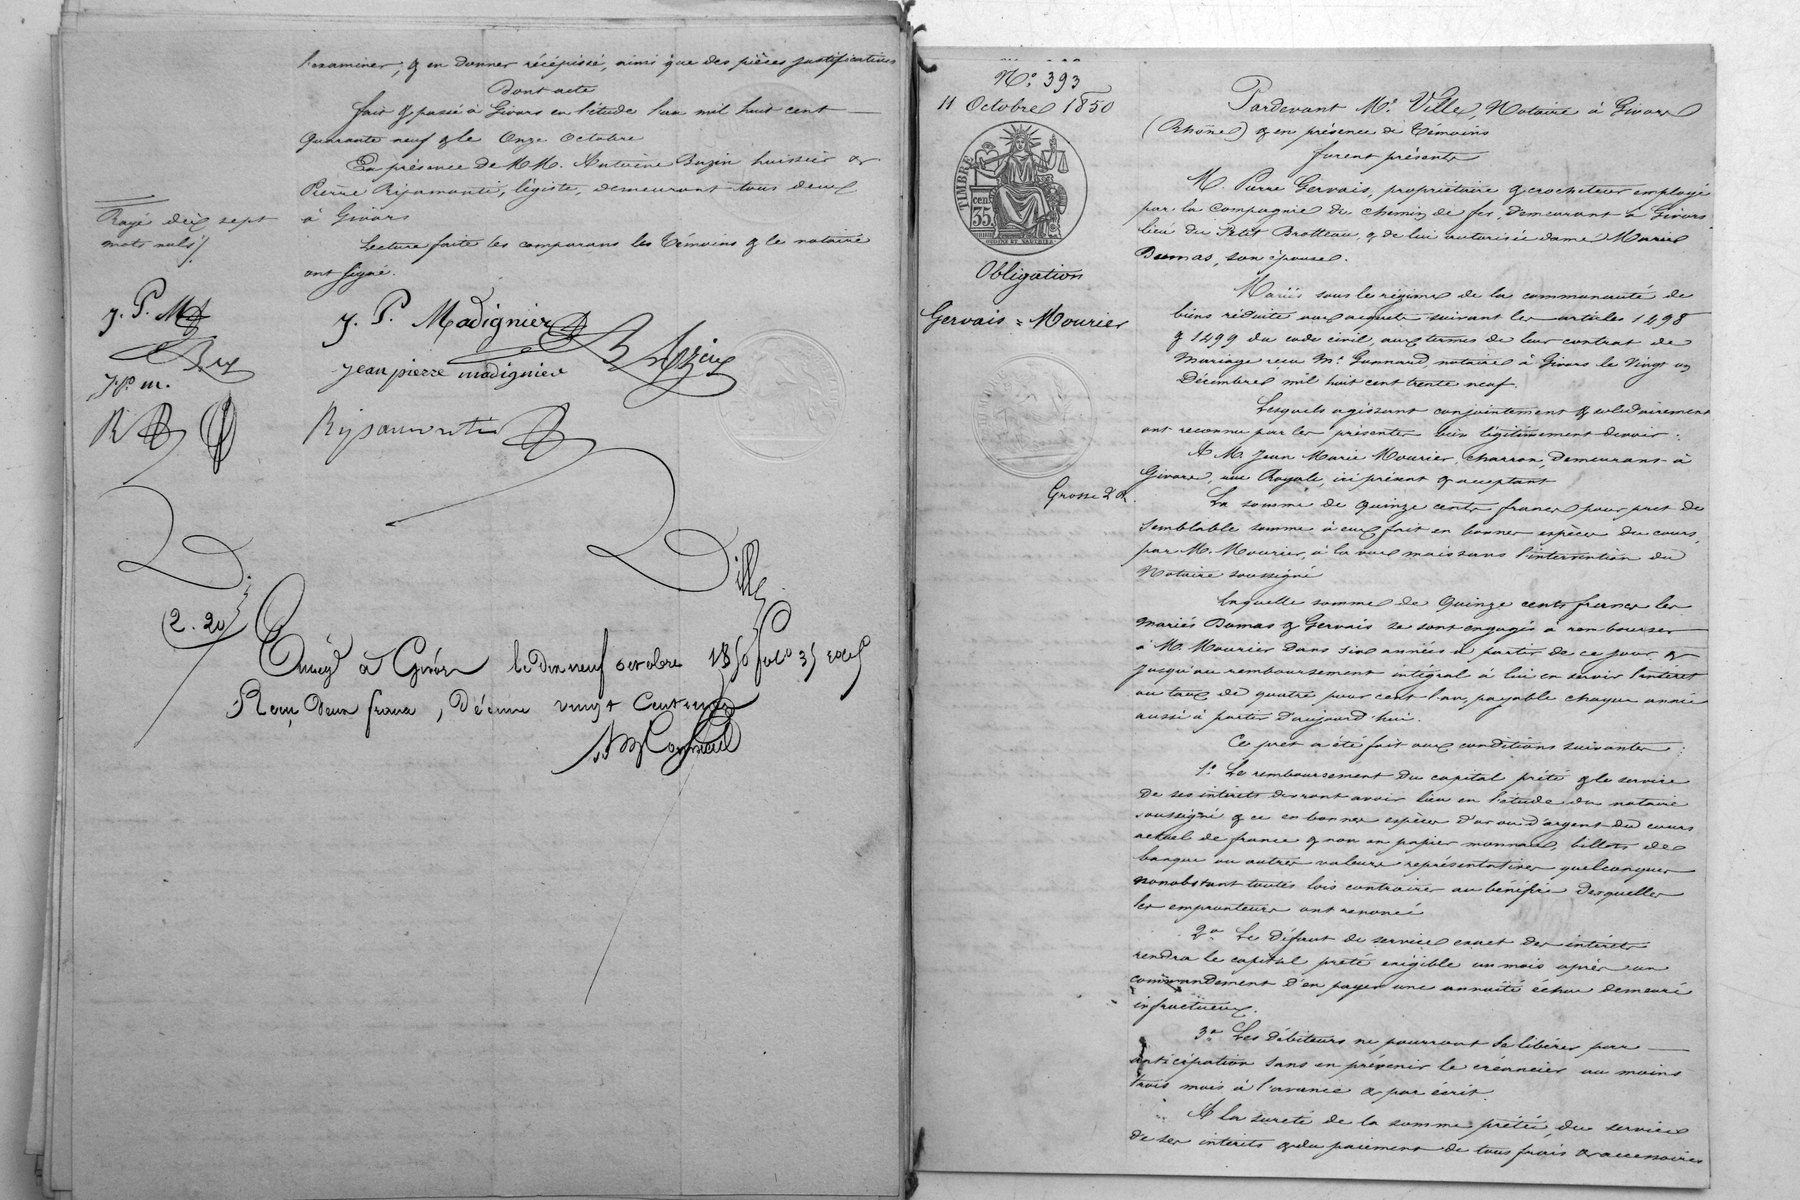 l'examiner, & en donner récépissé, ainsi que des pièces justificatives
Dont acte
fait & passé à Givors en l'étude l'an mil huit cent
quarante neuf & le Onze Octobre
En présence de MM. Antoine Buzin huissier &
Pierre Ripamonti, légiste, demeurant tous deux
à Givors
Lecture faite les comparans les témoins & le notaire
ont signé.
Rayé dix sept
mots nuls /.
J. P. M
J. P. Madignier
jean pierre madignier
J. P. m.
Ripamonti
Ville
2.20
Enreg à Givors le dix neuf octobre 1850 fol 35
Reçu Deux francs, Décime vingt Centimes
N° 393
11 Octobre 1850
TIMBRE
35 cen.
Obligation
Gervais = Mourier
Grosse
Pardevant Me Ville, Notaire à Givors
(Rhône) & en présence de témoins
furent présents
M. Pierre Gervais, propriétaire & crocheteur employé
par la Compagnie du chemin de fer, demeurant à Givors
lieu du Petit Brotteau, & de lui autorisée dame Marie
Dumas, son épouse.
Mariés sous le régime de la communauté de
biens réduite aux acquets suivant les articles 1498
& 1499 du code civil, aux termes de leur contrat de
mariage reçu Me notaire à Givors le Vingt un
Décembre mil huit cent trente neuf.
Lesquels agissant conjointement & solidairement
ont reconnu par les présentes bien légitimement devoir :
A M. Jean Marie Mourier, charron, demeurant à
Givors, rue Royale, ici présent & acceptant
La somme de Quinze cents francs pour pret de
semblable somme à eux fait en bonnes espèces du cours,
par M. Mourier, à la vue mais sans l'intervention du
Notaire soussigné
Laquelle somme de Quinze cents francs les
mariés Dumas & Gervais se sont engagés à rembourser
à M. Mourier dans six années à partir de ce jour &
jusqu'au remboursement intégral à lui en servir l'intéret
au taux de quatre pour cent l'an, payable chaque année
aussi à partir d'aujourd'hui.
Ce pret a été fait aux conditions suivantes :
1° Le remboursement du capital prété & le service
de ses intérets devront avoir lieu en l'étude du notaire
soussigné & ce en bonnes espèces d'or ou d'argent du cours
actuel de france & non en papier monnaie, billets de
banque ou autres valeurs représentatives quelconques
nonobstant toutes lois contraires au bénéfice desquelles
les emprunteurs ont renoncé
2° Le défaut de service exact des intérets
rendra le capital prété exigible un mois après un
commandement d'en payer une annuité échue demeuré
infructueux.
3° Les débiteurs ne pourront se libérer par
anticipation sans en prévenir le créancier au moins
trois mois à l'avance & par écrit.
A la sureté de la somme prétée, du service
de ses intérets & du paiement de tous frais & accessoires